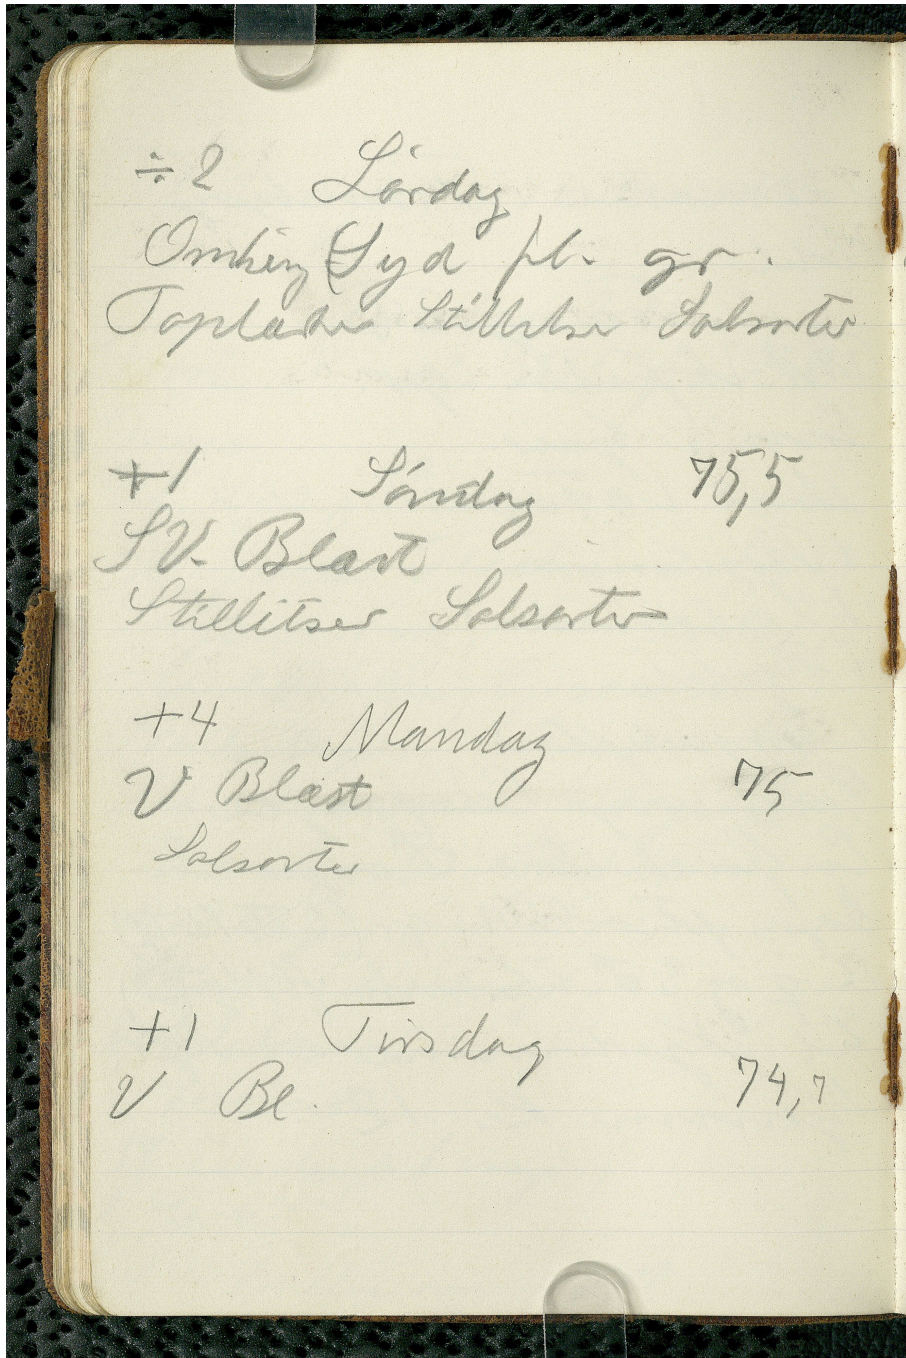 ÷2 Lørdag
Omkring Syd bl. gr.
Toplærker Stillitser Solsorter
+1 Søndag 75,5
SV. Blæst
Stillitser Solsorter
+4 Mandag
V Blæst 75
Solsorter
+1 Tirsdag
V Bl. 74,7